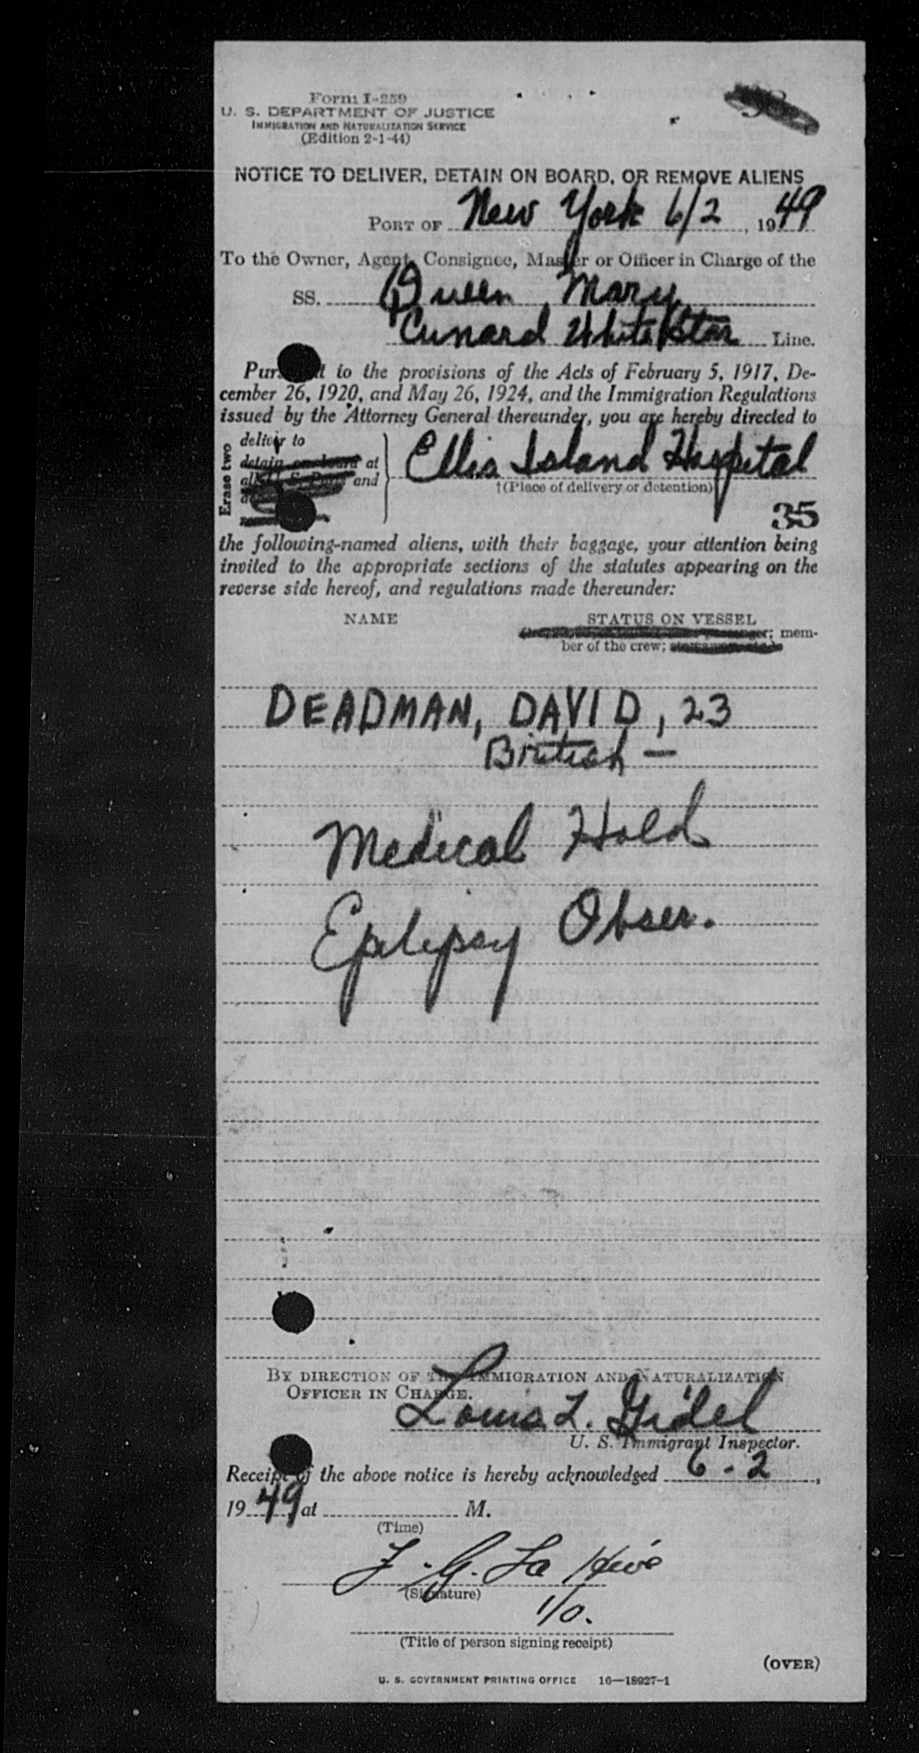 Form I-259
U. S. DEPARTMENT OF JUSTICE
IMMIGRATION AND NATURALIZATION SERVICE
(Edition 2-1-44)
NOTICE TO DELIVER, DETAIN ON BOARD, OR REMOVE ALIENS
PORT OF New York 6/2, 1949
To the Owner, Agent, Consignee, Master or Officer in Charge of the
SS. Queen Mary
Cunard White Star Line.
to the provisions of the Acts of February 5, 1917, De-
cember 26, 1920, and May 26, 1924, and the Immigration Regulations
issued by the Attorney General thereunder, you are hereby directed to
Erase two
deliver to
detain on board at
and
Ellis Island Hospital
†(Place of delivery or detention)
35
the following-named aliens, with their baggage, your attention being
invited to the appropriate sections of the statutes appearing on the
reverse side hereof, and regulations made thereunder:
NAME STATUS ON VESSEL
mem-
ber of the crew;
DEADMAN, DAVID, 23
British —
Medical Hold
Epilipsy Obser.
BY DIRECTION OF THE IMMIGRATION AND NATURALIZATION
OFFICER IN CHARGE.
Louis L. Gidel
U. S. Immigrant Inspector.
Receipt of the above notice is hereby acknowledged 6-2,
1949 at M.
(Time)
(Signature)
1/0.
(Title of person signing receipt)
(OVER)
U. S. GOVERNMENT PRINTING OFFICE 16—18927-1